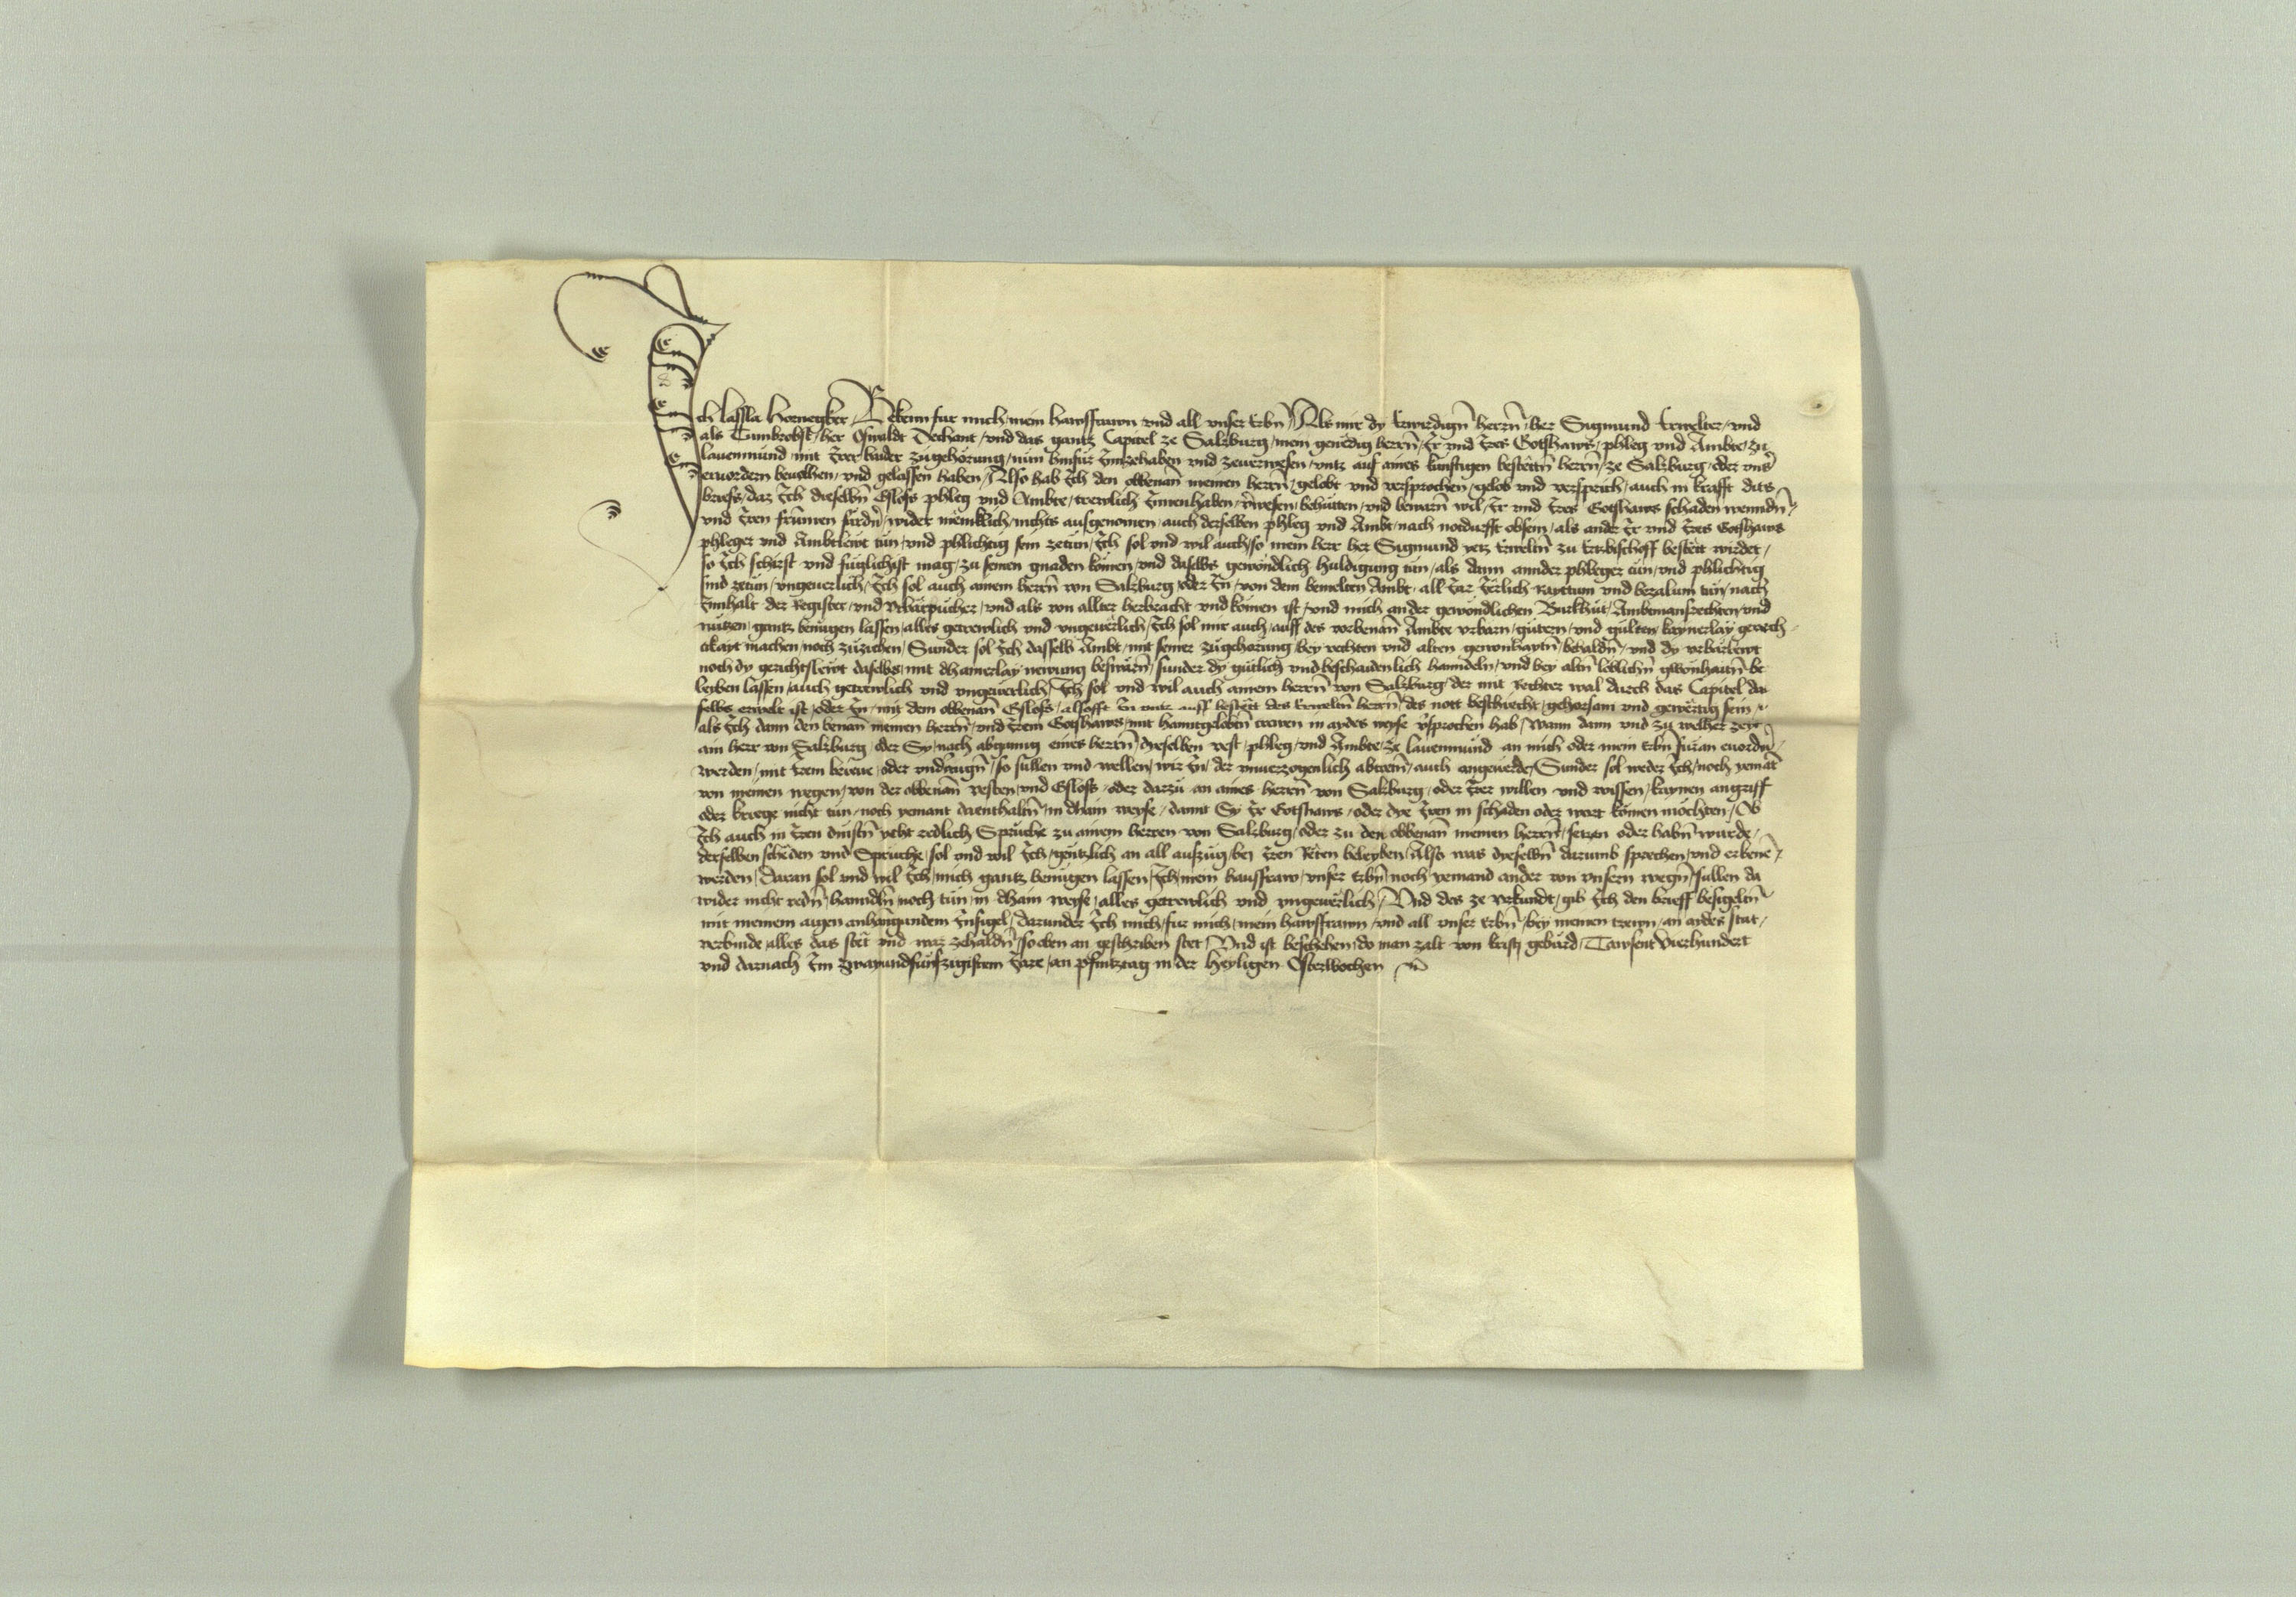 Ich lassla Hornegker / Bekenn fur mich / mein hawsfrawn vnd all vnser Erbn̄ / Als mir dy Erwirdign̄ herrn̄ / her Sigmund Erwelter / vnd
als Tumbrobst / her Oswaldt Techant / vnd das gantz Capitel ze Salzburg / mein genëdig herrn̄ / Ir vnd Irs Gotshaws / phleg vnd Ambte / zu
lauenmund / mit Irer baider zugehörung / nün hinfür Innzehaben vnd zeuerwesen / vntz auf aines kunftigen bestëttn̄ herrn̄ / ze Salzburg / oder vnser
eruordern beuolhen / vnd gelassen haben / Also hab Ich den obbenan̄ meinen herrn̄ / gelobt vnd versprochen / gelob vnd versprich / auch in krafft ditz
briefs / daz Ich dieselbn̄ Gsloss phleg vnd Ambte / trewlich Innenhaben / v̄wesen / behütten / vnd bewarn̄ wil / Ir vnd Irs Gotshaws schaden wenndn̄
vnd Iren frümen fürdn̄ / wider mëniklich / nichts ausgenomen / auch derselben phleg vnd Ambt / nach notdurfft obsein / als ander Ir vnd Irs Gotshaws
phleger vnd Ambtlewt tün / vnd phlichtig sein zetün / Ich sol vnd wil auch / so mein herr her Sigmund yetz Erweltn̄ zu Ertzbischoff bestëtt wirdet /
so Ich schirst vnd füglichist mag / zu seinen gnaden kömen / vnd daselbs gewöndlich huldigung tün / als dann annder phleger tün / vnd phlichtig
sind zetün / vngeuerlich / Ich sol auch ainem herrn̄ von Salzburg / oder In / von dem bemelten Ambt / all Iar Iërlich Raittum vnd bezalum tün / nach
Innhalt der Register / vnd Vrbarpücher / vnd als von allter herbracht vnd kömen ist / vnd mich ander gewöndlichen Burkhüt / Ambtmansrechten / vnd
nützen / gantz benügen lassen / alles getrewlich vnd vngeuërlich / Ich sol mir auch / auff des vorbenan̄ Ambte vrbarn / gütern / vnd gülten / kaynerlay gerech
tikayt machen / noch zuziehen / Sunder sol Ich dasselb Ambt / mit seiner zugehörung / bey rechten vnd alten gewonhaytn̄ / behaldn̄ / vnd dy vrbarlewt
noch dy gerichtslewt daselbs / mit dhainerlay newung beswärn̄ / sunder dy gütlich vnd beschaidenlich hanndeln / vnd bey altn̄ löblichn̄ gwonhaitn̄ be
leiben lassen / auch getrewlich vnd vngeuerlich / Ich sol vnd wil auch ainem herrn̄ von Salzburg / der mit Rechter wal durch das Capitel da
selbs erwelt ist / oder In / mit dem obbenan̄ Gsloss / alsofft In vntz auff bestëtt des Erweltn̄ herrn̄ / des nott beschiecht / gehorsam vnd gewërtig sein /
als Ich dann den benan̄ meinen herrn̄ / vnd Irem Gotshaws / mit hanntgelobn̄ trewen in aides weyse v̄sprochen hab / Wann dann vnd zu welher zeyt
ain herr von Salzburg / oder Sy / nach abganng eines herrn̄ / dieselben vest / phleg / vnd Ambte / ze lauenmund an mich oder mein Erbn̄ füran eruordn̄
werden / mit Irem brieue / oder vndrügn̄ / so süllen vnd wellen / wir In / der vnuerzogenlich abtretn̄ / auch angeuerde / Sunder sol weder Ich / noch yemat̄
von meinen wegen / von der obbenan̄ vesten / vnd Gsloss / oder darzu an aines herrn̄ von Salzburg / oder Irer willen vnd wissen / kaynen angriff
oder kriege nicht tün / noch yemant daenthaltn̄ / in dhain weyse / damit Sy Ir Gotshaws / oder dye Iren in schaden oder wort kömen möchten / Ob
Ich auch in Iren dinstn̄ ycht redlich Sprüche zu ainem herren von Salzburg / oder zu den obbenan̄ meinen herrn̄ / setzen oder habn̄ würde /
derselben schëden vnd Sprüche / sol vnd wil Ich / gëntzlich an all auszüg / bei Iren Rëten beleyben / Also was dieselbn̄ darumb sprechen / vnd erkenn̄
werden / Daran sol vnd wil Ich / mich gantz benügen lassen / Ich / mein hausfraw / vnser Erbn̄ / noch yemand ander von vnsern wegn̄ / süllen da
wider nicht redn̄ / hanndln̄ / noch tün / in dhain weyse / alles getrewlich vnd vngeuërlich / Vnd des ze vrkundt / gib Ich den brieff besigeltn̄
mit meinem aigen anhangundem Insigel / darunder Ich mich / fur mich / mein hawsfrawn / vnd all vnser Erbn̄ / bey meinen trewn / an aides stat /
verbinde / alles das stët vnd war zehaldn̄ / so oben an geschriben stet / Vnd ist beschehen / do man zalt von kristi gebürd / Tawsent Vierhundert
vnd darnach Im zwayundfünfzigistem Iare / an phintztag in der heyligen Osterwochen